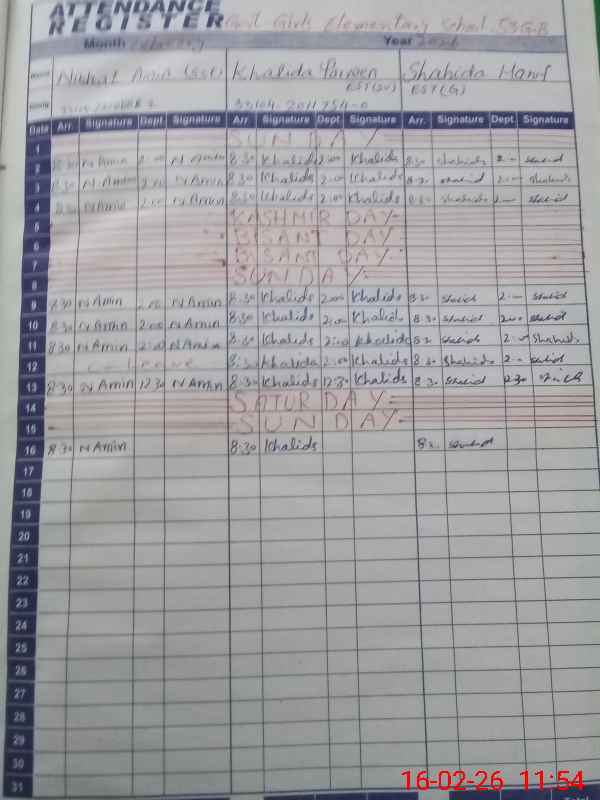 ATTENDANCE
REGISTER Govt. Girls Elementary School 53 G.B
Month February Year 2026
Name Nudrat Amin (SST) Khalida Parveen Shahida Hanif
EST(SV) EST(G)
Date Arr. Signature Dept. Signature Arr. Signature Dept. Signature Arr. Signature Dept. Signature
1 SUNDAY
2 8:30 N Amin 2:00 N Amin 8:30 Khalida 2:00 Khalida 8:30 Shahida 2:00
3 8:30 N Amin 2:00 N Amin 8:30 Khalida 2:00 Khalida 8:30 2:00 Shahida
4 8:30 N Amin 2:00 N Amin 8:30 Khalida 2:00 Khalida 8:30 Shahida 2:00
5 KASHMIR DAY
6 BISANT DAY
7 BISANT DAY
8 SUNDAY
9 8:30 N Amin 2:00 N Amin 8:30 Khalida 2:00 Khalida 8:30 2:00
10 8:30 N Amin 2:00 N Amin 8:30 Khalida 2:00 Khalida 8:30 2:00
11 8:30 N Amin 2:00 N Amin 8:30 Khalida 2:00 Khalida 8:30 2:00 Shahida
12 Leave 8:30 Khalida 2:00 Khalida 8:30 Shahida 2:00
13 8:30 N Amin 12:30 N Amin 8:30 Khalida 12:30 Khalida 8:30 12:30
14 SATURDAY
15 SUNDAY
16 8:30 N Amin 8:30 Khalida 8:30
17
18
19
20
21
22
23
24
25
26
27
28
29
30
31
16-02-26 11:54
Total